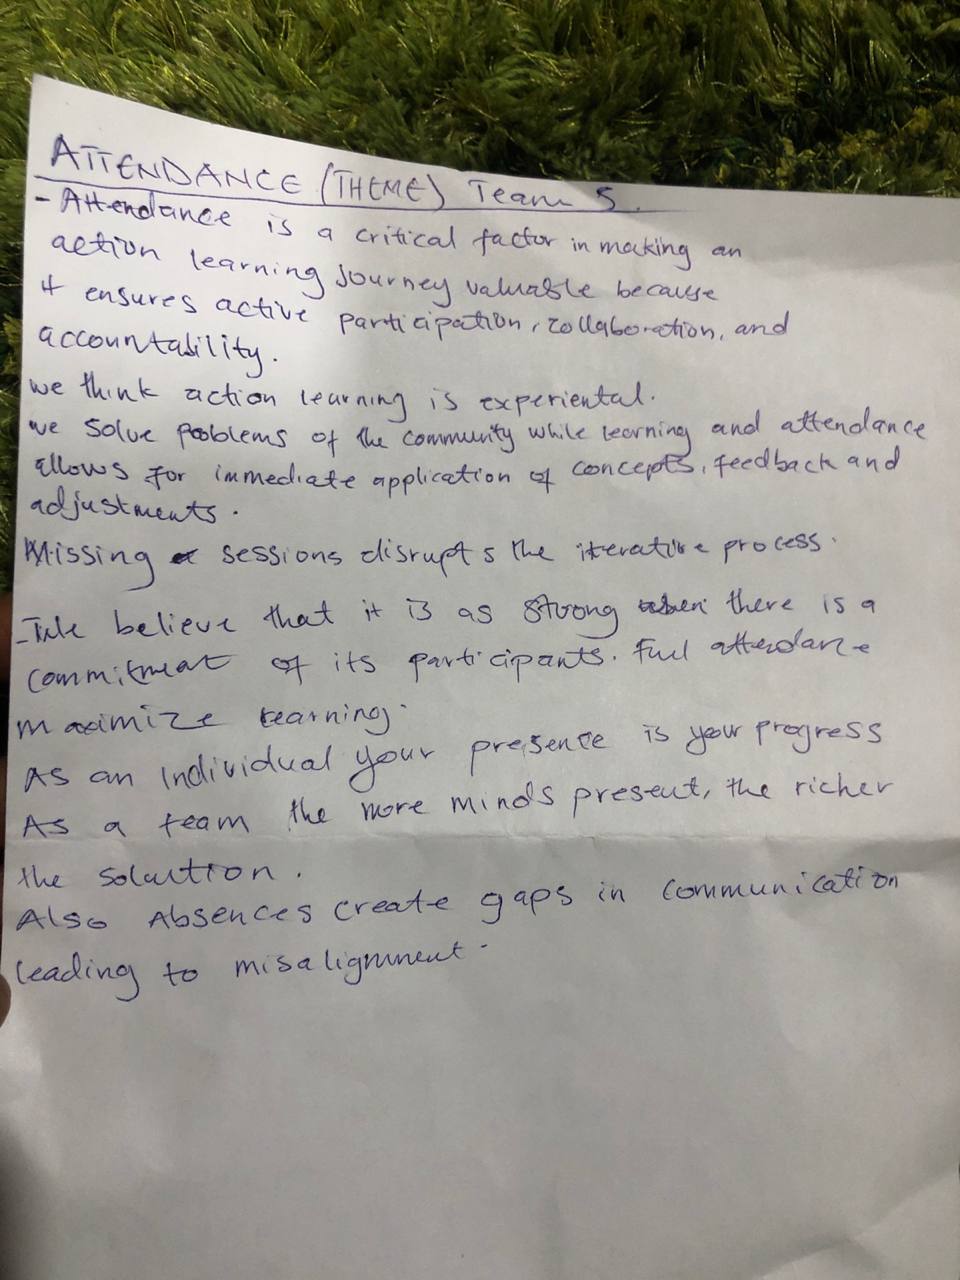 ATTENDANCE (THEME) Team 5.
- Attendance is a critical factor in making an
action learning journey valuable because
it ensures active participation, collaboration, and
accountability.
we think action learning is experiental.
we solve problems of the community while learning and attendance
allows for immediate application of concepts, feedback and
adjustments.
Missing sessions disrupts the iterative process.
- We believe that it is as strong when there is a
commitment of its participants. Full attendance
maximize learning.
As an individual your presence is your progress
As a team the more minds present, the richer
the solution.
Also Absences create gaps in communication
leading to misalignment.